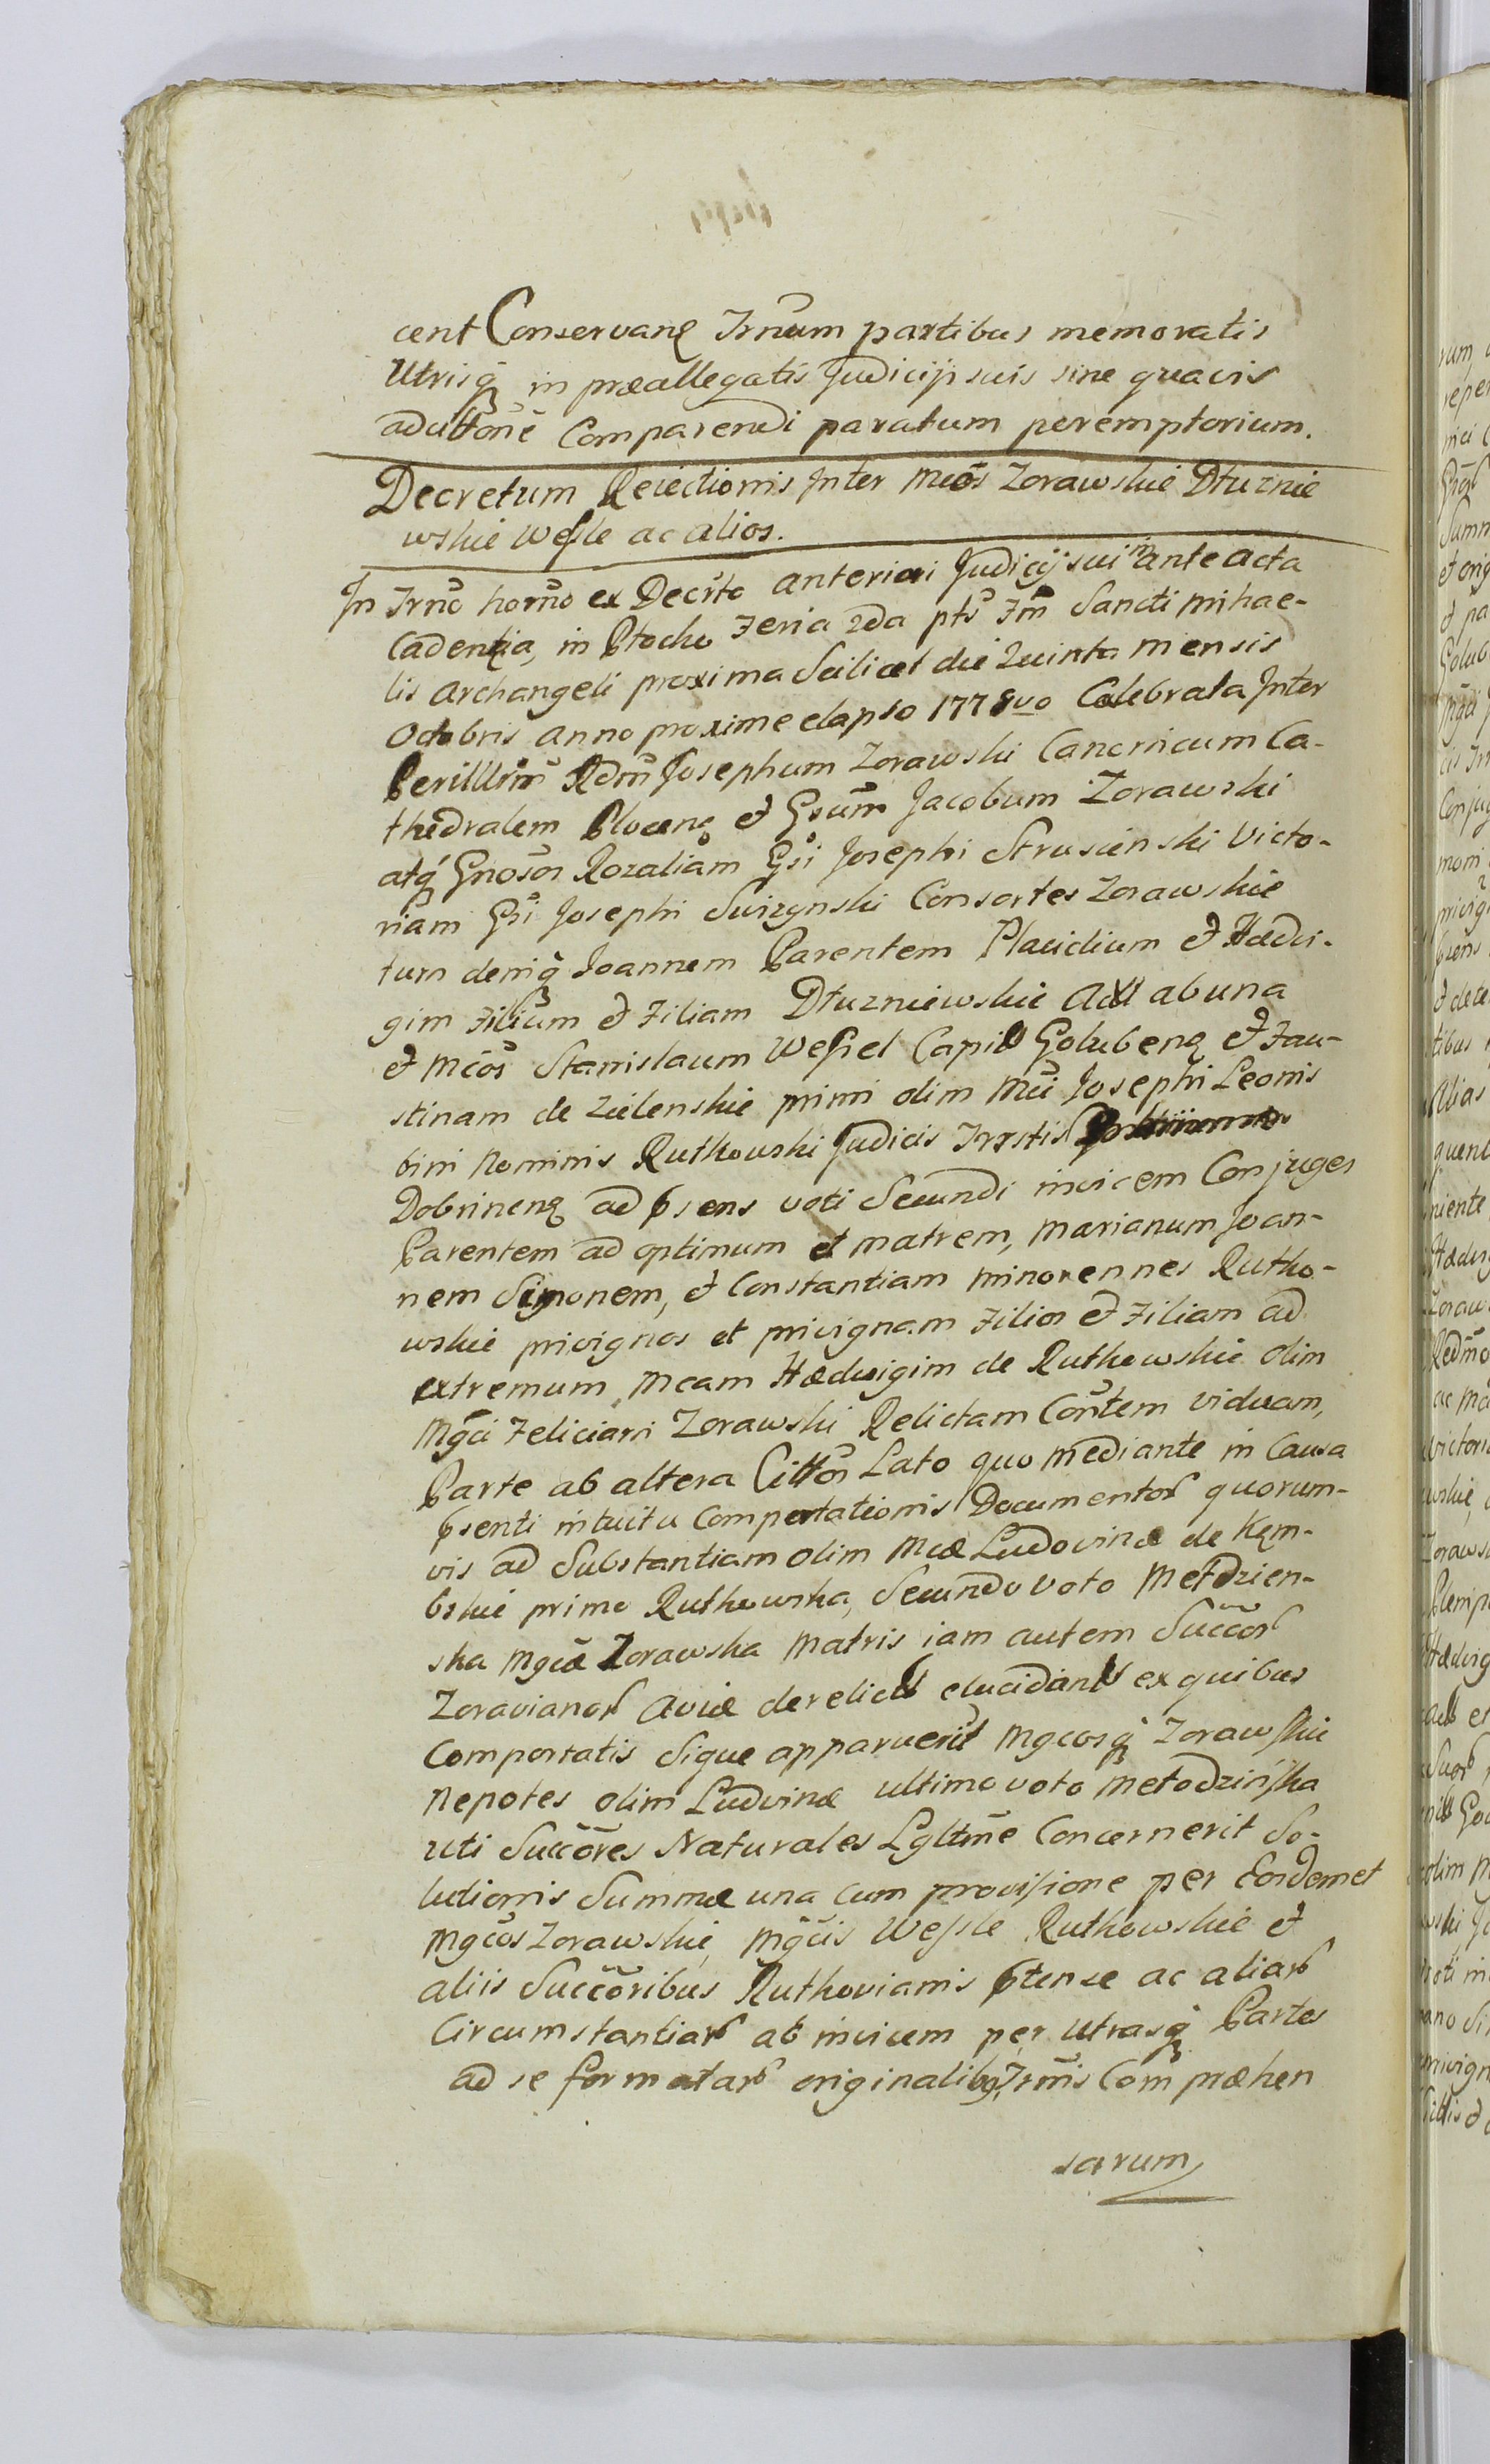 cent Conservanꝫ Trnum partibus memoratis
Utrisq in præallegatis Judicijs suis sine quavis
aducttone Comparendi paratum peremptorium.
Decretum Reiectionis Inter Mcos Zorawskie Dłuznie
wskie Wessle ac alios.
In Trno horno ex Decrto anteriori Judicij sui in ante acta
Cadentia, in Płocko Feria 2da pts Fm Sancti Mihae-
lis Archangeli proxima Scilicet die Quinta mensis
Octobris Anno proxime elapso 1778vo Celebrata Inter
Perilllrm Rdm Josephum Zorawski Canonicum Ca-
thedralem Plocenꝫ et Gsum Jacobum Zorawski
atq Gnosos Rozaliam Gsi Josephi Strusienski Victo-
riam Gsi Josephi Swizynski Consortes Zorawskie
tum deniq Joannem Parentem Placidium et Hædvi-
gim Filium et Filiam Dłuzniewskie Actt ab una
et Mcos Stanislaum Wessel Capitt Golubenꝫ et Fau-
stinam de Zielenskie primi olim Mci Josephi Leonis
bini Nominis Rutkowski Judicis Trrstis
Dobrinenꝫ ad psens voti Secundi invicem Conjuges
Parentem ad optimum et matrem, Marianum Joan-
nem Simonem, et Constantiam minorennes Rutko-
wskie privignos et privignam Filios et Filiam ad
extremum Mcam Hædwigim de Rutkowskie olim
Mgci Feliciani Zorawski Relictam Contem viduam,
Parte ab altera Cittos Lato quo mediante in Causa
psenti intuitu Comportationis Documentor quorum-
vis ad Substantiam olim Mcæ Ludovinæ de Kem-
bskie primo Rutkowska, Secundo Voto Metdzien-
ska Mgcæ Zorawska Matris iam autem Succor
Zoravianor Aviæ derelictt elucidantt ex quibus
Comportatis Sique apparuerit Mgcosq Zorawskie
Nepotes olim Ludvinæ ultimo voto Metodzińska
uti Succores Naturales Lgltme Concernerit So-
lutionis Summæ una cum provisione per Eosdemet
Mgcos Zorawskie, Mgcis Wessle Rutkowskie et
aliis Succoribus Rutkovianis ptensæ ac aliar
Circumstantiar ab invicem per Utrasq Partes
ad se formatar originalibq Trmis Com præhen
sarum